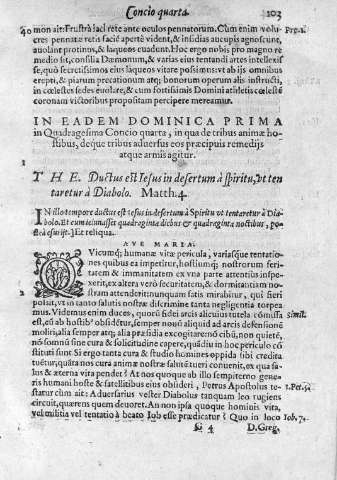 Concio quarta. 103
40 mon ait: Frustrà iaci rete ante oculos pennatorum. Cum enim volu Pro. 1.
cres pennatæ retis facie apertè vident, & insidias aucupis agnoscunt,
auolant protinus, & laqueos euadent. Hoc ergo nobis pro magno re
medio sit, consilia Dæmonum, & varias eius tentandi artes intellexis
se, quò secretissimos eius laqueos vitare possimus: vt ab ijs omnibus
erepti, & piarum precationum atq; bonorum operum alis instructi,
in cœlestes sedes euolare, & cum fortissimis Domini athletis cœlestẽ
coronam victoribus propositam percipere mereamur.
IN EADEM DOMINICA PRIMA
in Quadragesima Concio quarta, in qua de tribus animæ ho-
stibus, deque tribus aduersus eos præcipuis remedijs
atque armis agitur.
1
T H E. Ductus est Iesus in desertum à spiritu, vt ten
taretur à Diabolo. Matth. 4.
IN illo tempore ductus est Iesus in desertum à Spiritu vt tentaretur à Dia-
bolo. Et cum ieiunasset quadraginta diebus & quadraginta noctibus, po-
steà esurijt. Et reliqua.
AVE MARIA.
QVicumq; humanæ vitæ pericula, variasque tentatio-
nes quibus ea impetitur, hostiumq; nostrorum feri-
tatem & immanitatem ex vna parte attentius inspe-
xerit, ex altera verò securitatem, & dormitantiam no-
2 stram attenderit: nunquam satis mirabitur, qui fieri
possit, vt in tanto salutis nostræ discrimine tanta negligentia torpea
mus. Videmus enim duces, quorũ fidei arcis alicuius tutela cõmissa Simil.
est, eũ ab hostibꝰ obsidẽtur, semper nouũ aliquid ad arcis defensionẽ
moliri, alia semper atq; alia præsidia excogitare: nõ cibũ, non quietẽ,
nõ somnũ sine cura & solicitudine capere, quãdiu in hoc periculo cõ
stituti sunt. Si ergo tanta cura & studio homines oppida sibi credita
tuẽtur, quãta nos cura animæ nostræ salutẽ tueri conuenit, ex qua sa-
lus & æterna vita pendet? At nos quoque ab illo sempiterno gene-
ris humani hoste & satellitibus eius obsideri, Petrus Apostolus te- 1. Pet. 5.
statur cum ait: Aduersarius vester Diabolus tanquam leo rugiens
circuit, quærens quem deuoret. An non ipsa quoque hominis vita,
vel militia vel tentatio à beato Iob esse prædicatur? Quo in loco Iob. 7.
G 4 D. Greg.